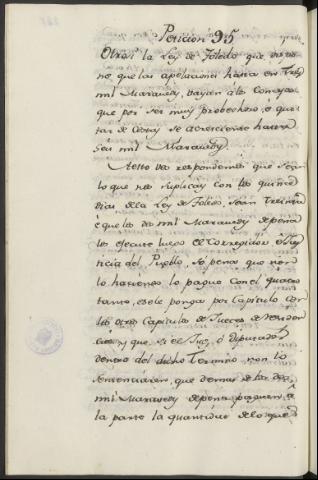 Peticion 95
Otrosi la Ley de Toledo que dispo
ne, que las apelaciones hasta en tres
mil Maravedis, vayan á los Concejos
que por ser muy probechoso, é qui
tar de Costas se acreciente hasta
seis mil Maravedis.
A esto vos respondemos que sean
lo que nos suplicais con los quince
dias de la Ley de Toledo, sean treinta
é que los dos mil Maravedis de pena
los execute luego el Corregidor o Jus
ticia del Pueblo, so pena que non
lo haciendo lo pague con el quatro
tanto, é se le ponga por Capitulo con
los otros Capitulos de Jueces de Residen
cia; y que si el Juez, ó deputados
dentro del dicho Termino non lo
sentenciaren, que demas de los dos
mil Maravedis de pena paguen á
la parte la quantidad de lo que